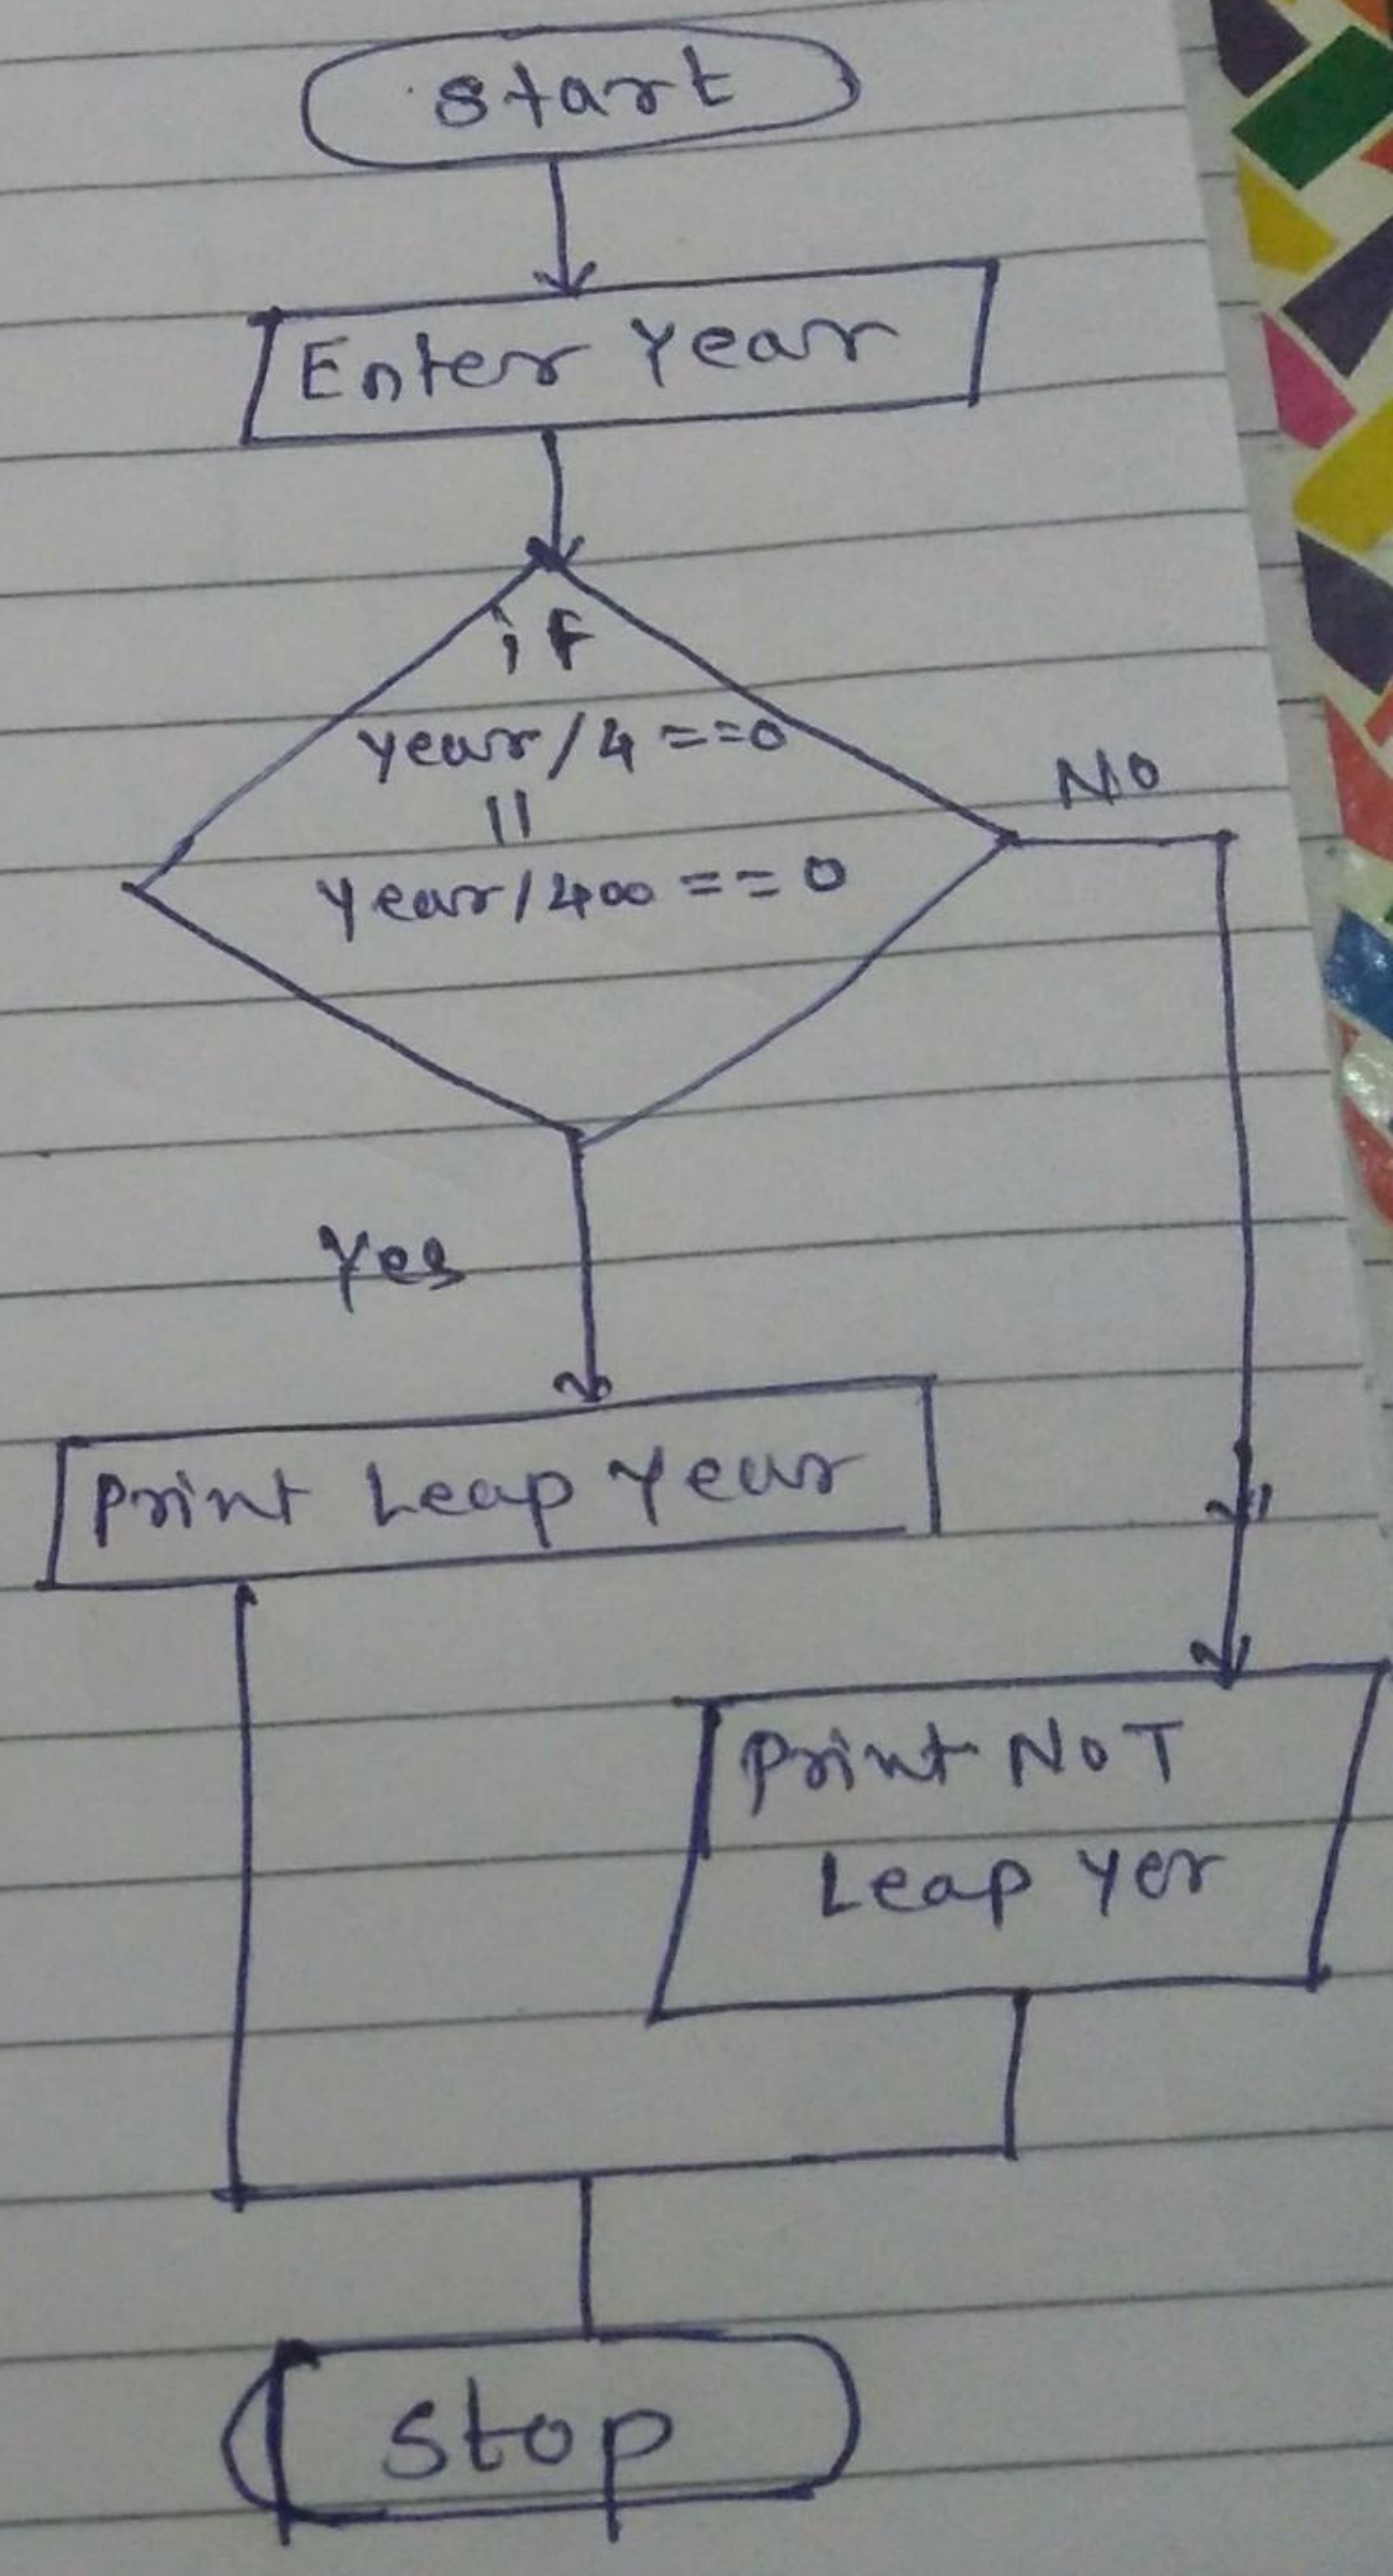 Start
Enter Year
if
year/4 ==0
||
year/400 == 0
No
Yes
Print Leap Year
Print NoT
Leap Yer
Stop